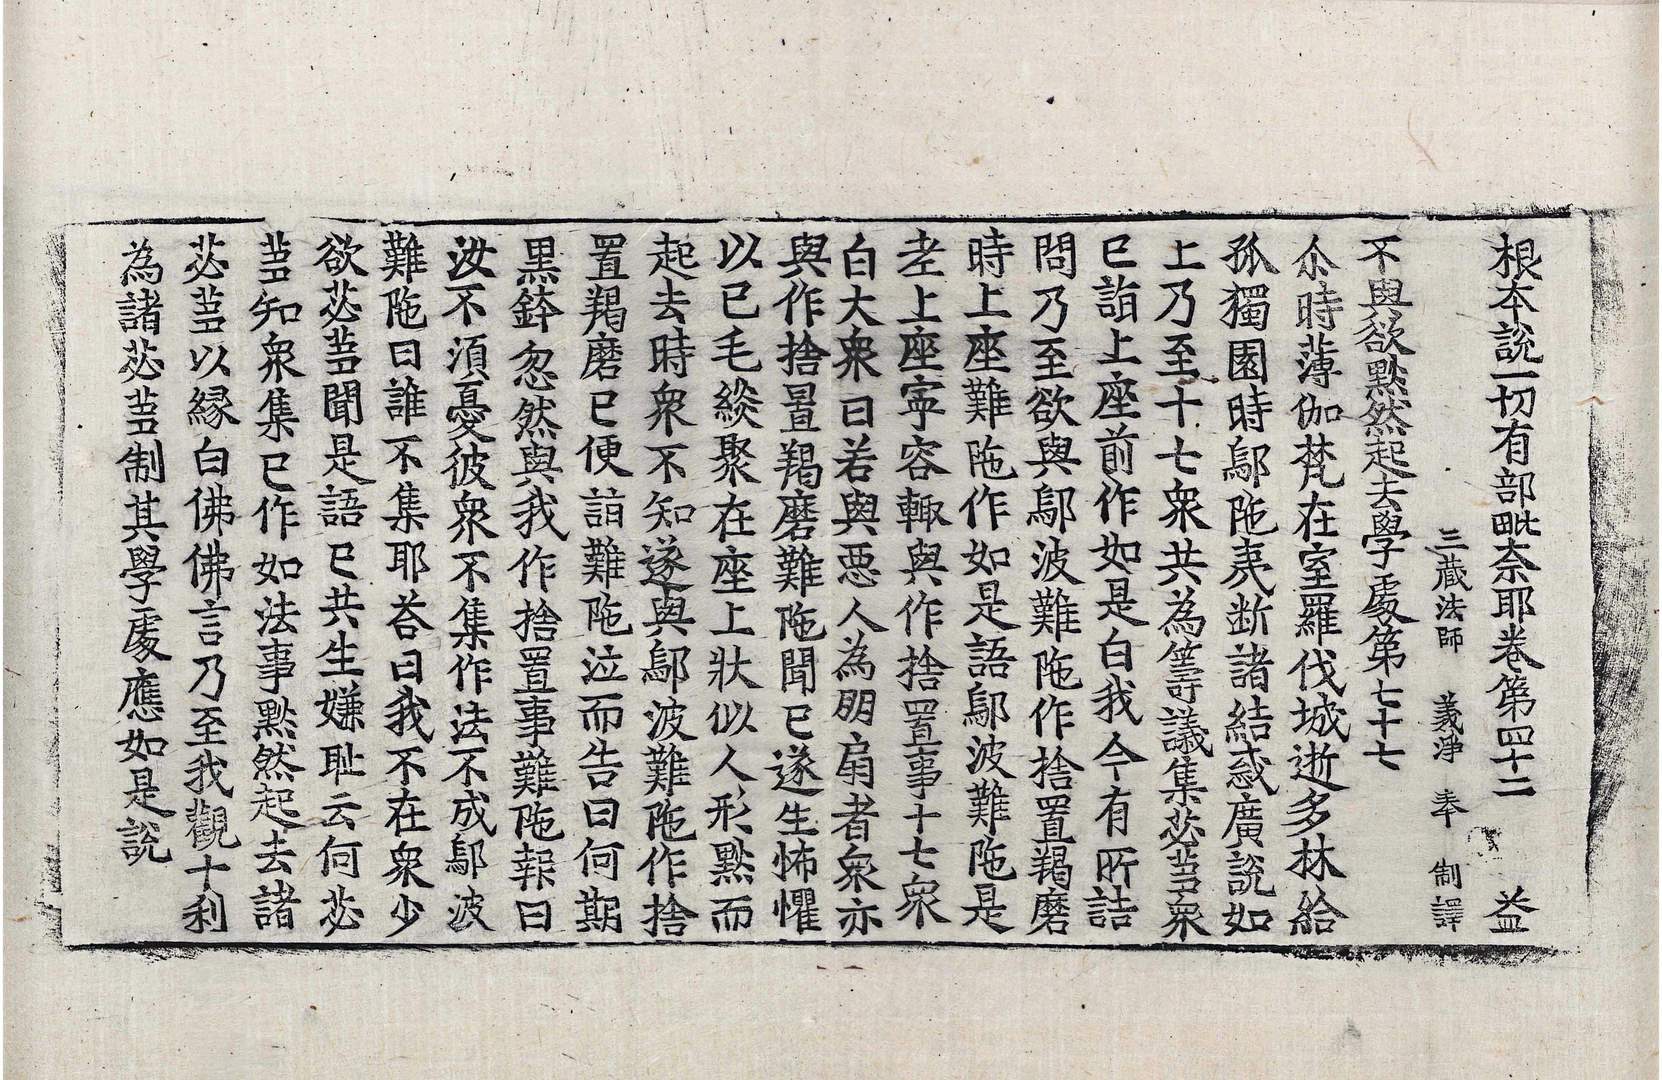 根本說一切有部毗奈耶卷第四十二 益
三藏法師 義淨 奉 制譯
不與欲黙然起去學處第七十七
尒時薄伽梵在室羅伐城逝多林給
孤獨園時鄔陁夷断諸結惑廣說如
上乃至十七衆共為籌議集苾芻衆
已詣上座前作如是白我今有所詰
問乃至欲與鄔波難陁作捨置羯磨
時上座難陁作如是語鄔波難陁是
老上座寜容輙與作捨置事十七衆
白大衆曰若與惡人為朋扇者衆亦
與作捨置羯磨難陁聞已遂生怖懼
以已毛緂聚在座上狀似人形黙而
起去時衆不知遂與鄔波難陁作捨
置羯磨已便詣難陁泣而告曰何期
黒鉢忽然與我作捨置事難陁報曰
汝不湏憂彼衆不集作法不成鄔波
難陁曰誰不集耶荅曰我不在衆少
欲苾芻聞是語已共生嫌耻云何苾
芻知衆集已作如法事黙然起去諸
苾芻以縁白佛佛言乃至我觀十利
為諸苾芻制其學處應如是說